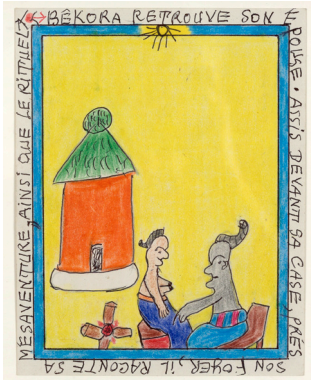 BÊKORA RETROUVE SON É
POUSE. ASSIS DEVANT SA CASE PRÈS
SON FOYER IL RACONTE SA
MÉSAVENTURE, AINSI QUE LE RITUEL